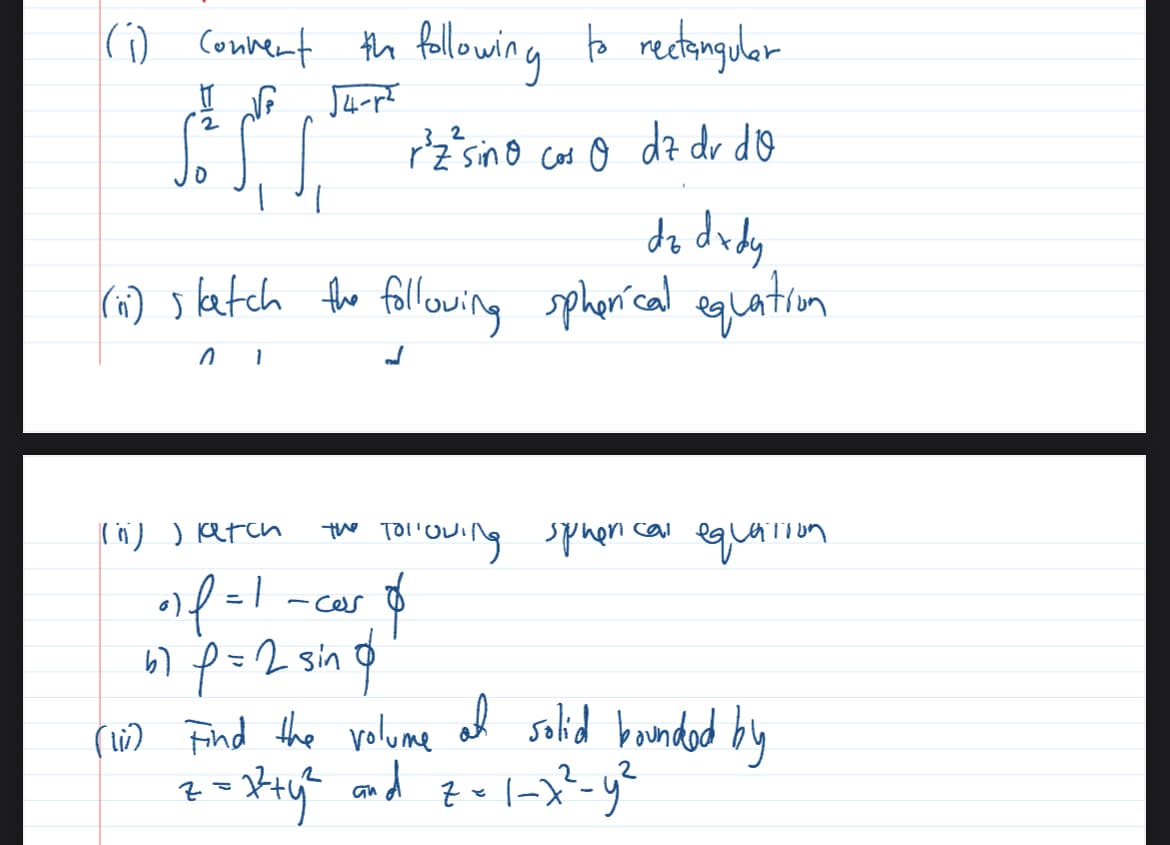 (i) Convert the following to rectangular
∫₀^{π/2} ∫₁^{√3} ∫₁^{√4-r²} r³z² sin θ cos θ dz dr dθ
dz dx dy
(ii) sketch the following spherical equation
(ii) sketch the following spherical equation
a) ρ = 1 - cos ϕ
b) ρ = 2 sin ϕ
(iii) Find the volume of solid bounded by
z = x²+y² and z = 1-x²-y²